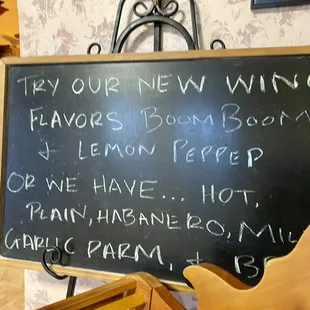 TRY OUR NEW WIN
FLAVORS BOOM BOOM
+ LEMON PEPPEP
OR WE HAVE... HOT,
PLAIN, HABANERO, MIL
GARLIC PARM, + B